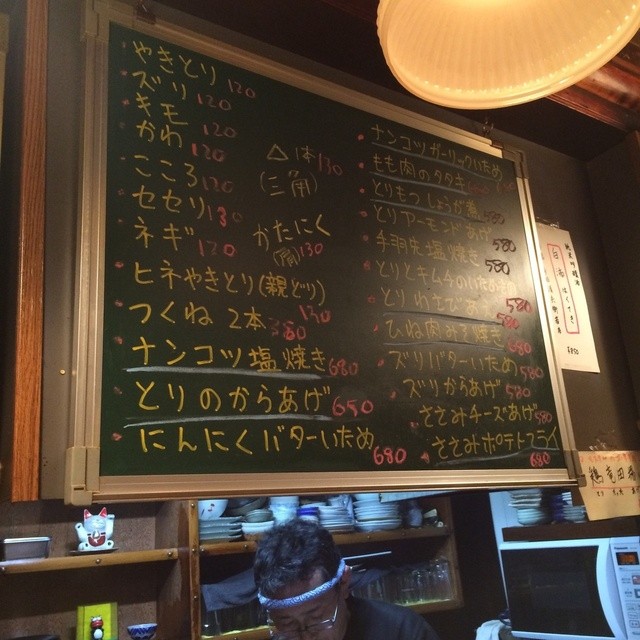 やきとり 120
ズリ 120
キモ 120
かわ 120
こころ 120
セセリ 130
ネギ 120
ヒネやきとり(親どり) 130
つくね 2本 380
ナンコツ塩焼き 680
とりのからあげ 650
にんにくバターいため 680
△ 1本 130
(三角)
かたにく
(肩) 130
ナンコツガーリックいため
もも肉のタタキ
とりもつしょうが煮
とりアーモンドあげ 580
手羽先塩焼き 580
とりとキムチのいため
とりわさびあ 580
ひね肉みそ焼き 580
ズリバターいため 580
ズリからあげ 580
ささみチーズあげ 580
ささみポテトフライ 680